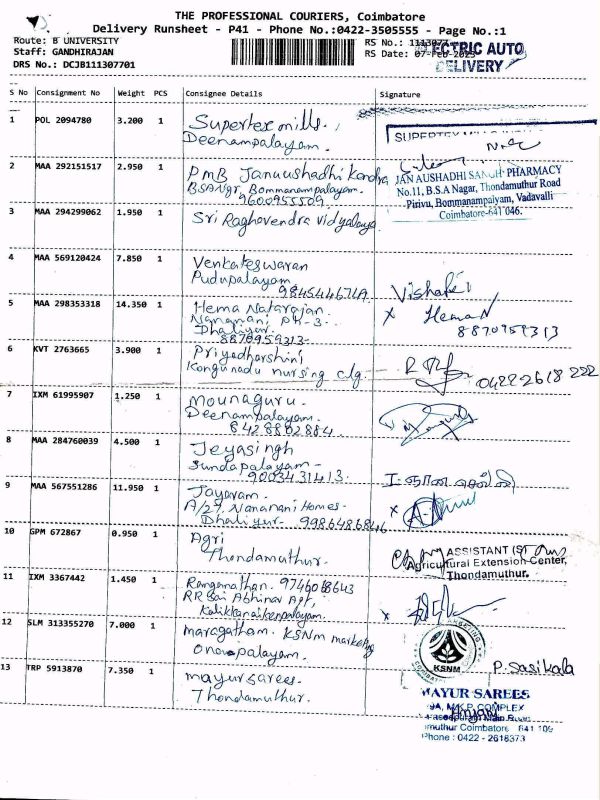 THE PROFESSIONAL COURIERS, Coimbatore
Delivery Runsheet - P41 - Phone No.:0422-3505555 - Page No.:1
Route: B UNIVERSITY
Staff: GANDHIRAJAN
DRS No.: DCJB111307701
RS No.: 1113077
RS Date: 07-Feb-2023
ELECTRIC AUTO
DELIVERY
S No Consignment No Weight PCS Consignee Details Signature
1 POL 2094780 3.200 1 Supertex mills.
Deenampalayam.
SUPERTEX
2 MAA 292151517 2.950 1 PMB Janaushadhi Kendra
BSA Ngr, Bommanampalayam.
9600955509
JAN AUSHADHI SANGH PHARMACY
No.11, B.S.A Nagar, Thondamuthur Road
Pirivu, Bommanampalyam, Vadavalli
Coimbatore-641 046.
3 MAA 294299062 1.950 1 Sri Raghavendra Vidyalaya
4 MAA 569120424 7.850 1 Venkateswaran
Pudupalayam
5 MAA 298353318 14.350 1 Hema Natarajan
Nananani PH-3-
Dhaliyur.
8870959313-
x Hema N
8870959313
6 KVT 2763665 3.900 1 Priyadharshini
Kongunadu nursing clg.
04222618 222
7 IXM 61995907 1.250 1 Mounaguru.
Deenampalayam.
8428802884.
8 MAA 284760039 4.500 1 Jeyasingh
Sundapalayam-
9003431413.
9 MAA 567551286 11.950 1 Jayaram.
A/27, Nananani Homes-
Dhaliyur.
x
10 GPM 672867 0.950 1 Agri
Thondamuthur.
ASSISTANT
Agricultural Extension Center,
Thondamuthur.
11 IXM 3367442 1.450 1 Ranganathan.
RR Sai Abhinav Apt,
Kalikkanaikenpalayam.
x
12 SLM 313355270 7.000 1 maragatham. KSNM marketing
Onapalayam.
KSNM
P. Sasikala
13 TRP 5913870 7.350 1 mayur sarees.
Thondamuthur.
MAYUR SAREES
9A, M.K.P. COMPLEX
Main Road
Coimbatore 641 109
Phone : 0422 - 2618373